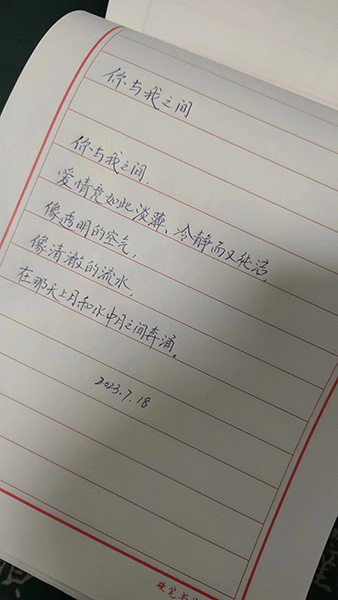 你与我之间
你与我之间,
爱情竟如此淡薄,冷静而又纯洁,
像透明的空气,
像清澈的流水,
在那天上月和水中月之间奔涌。
2023.7.18
硬笔书